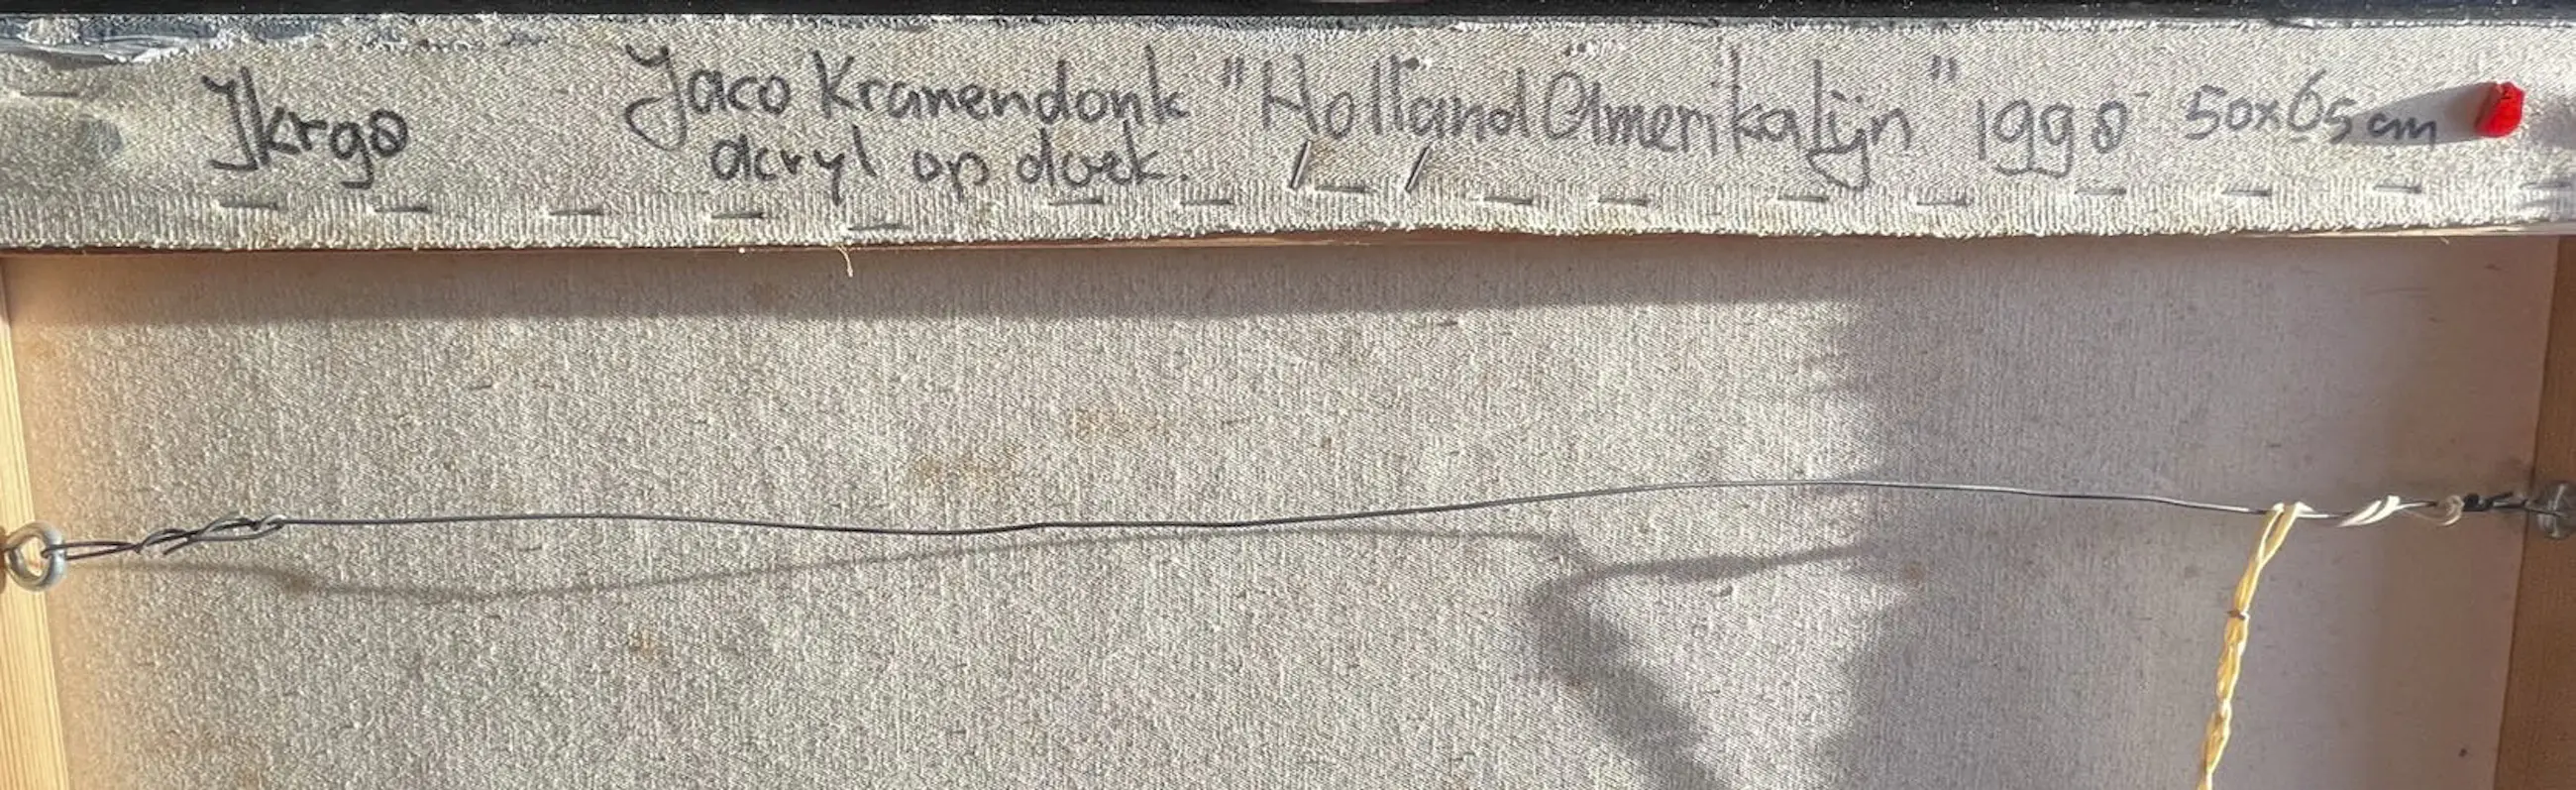 Jkr98 Jaco Kranendonk "Holland Amerikalijn" 1998 50x65 cm
acryl op doek.